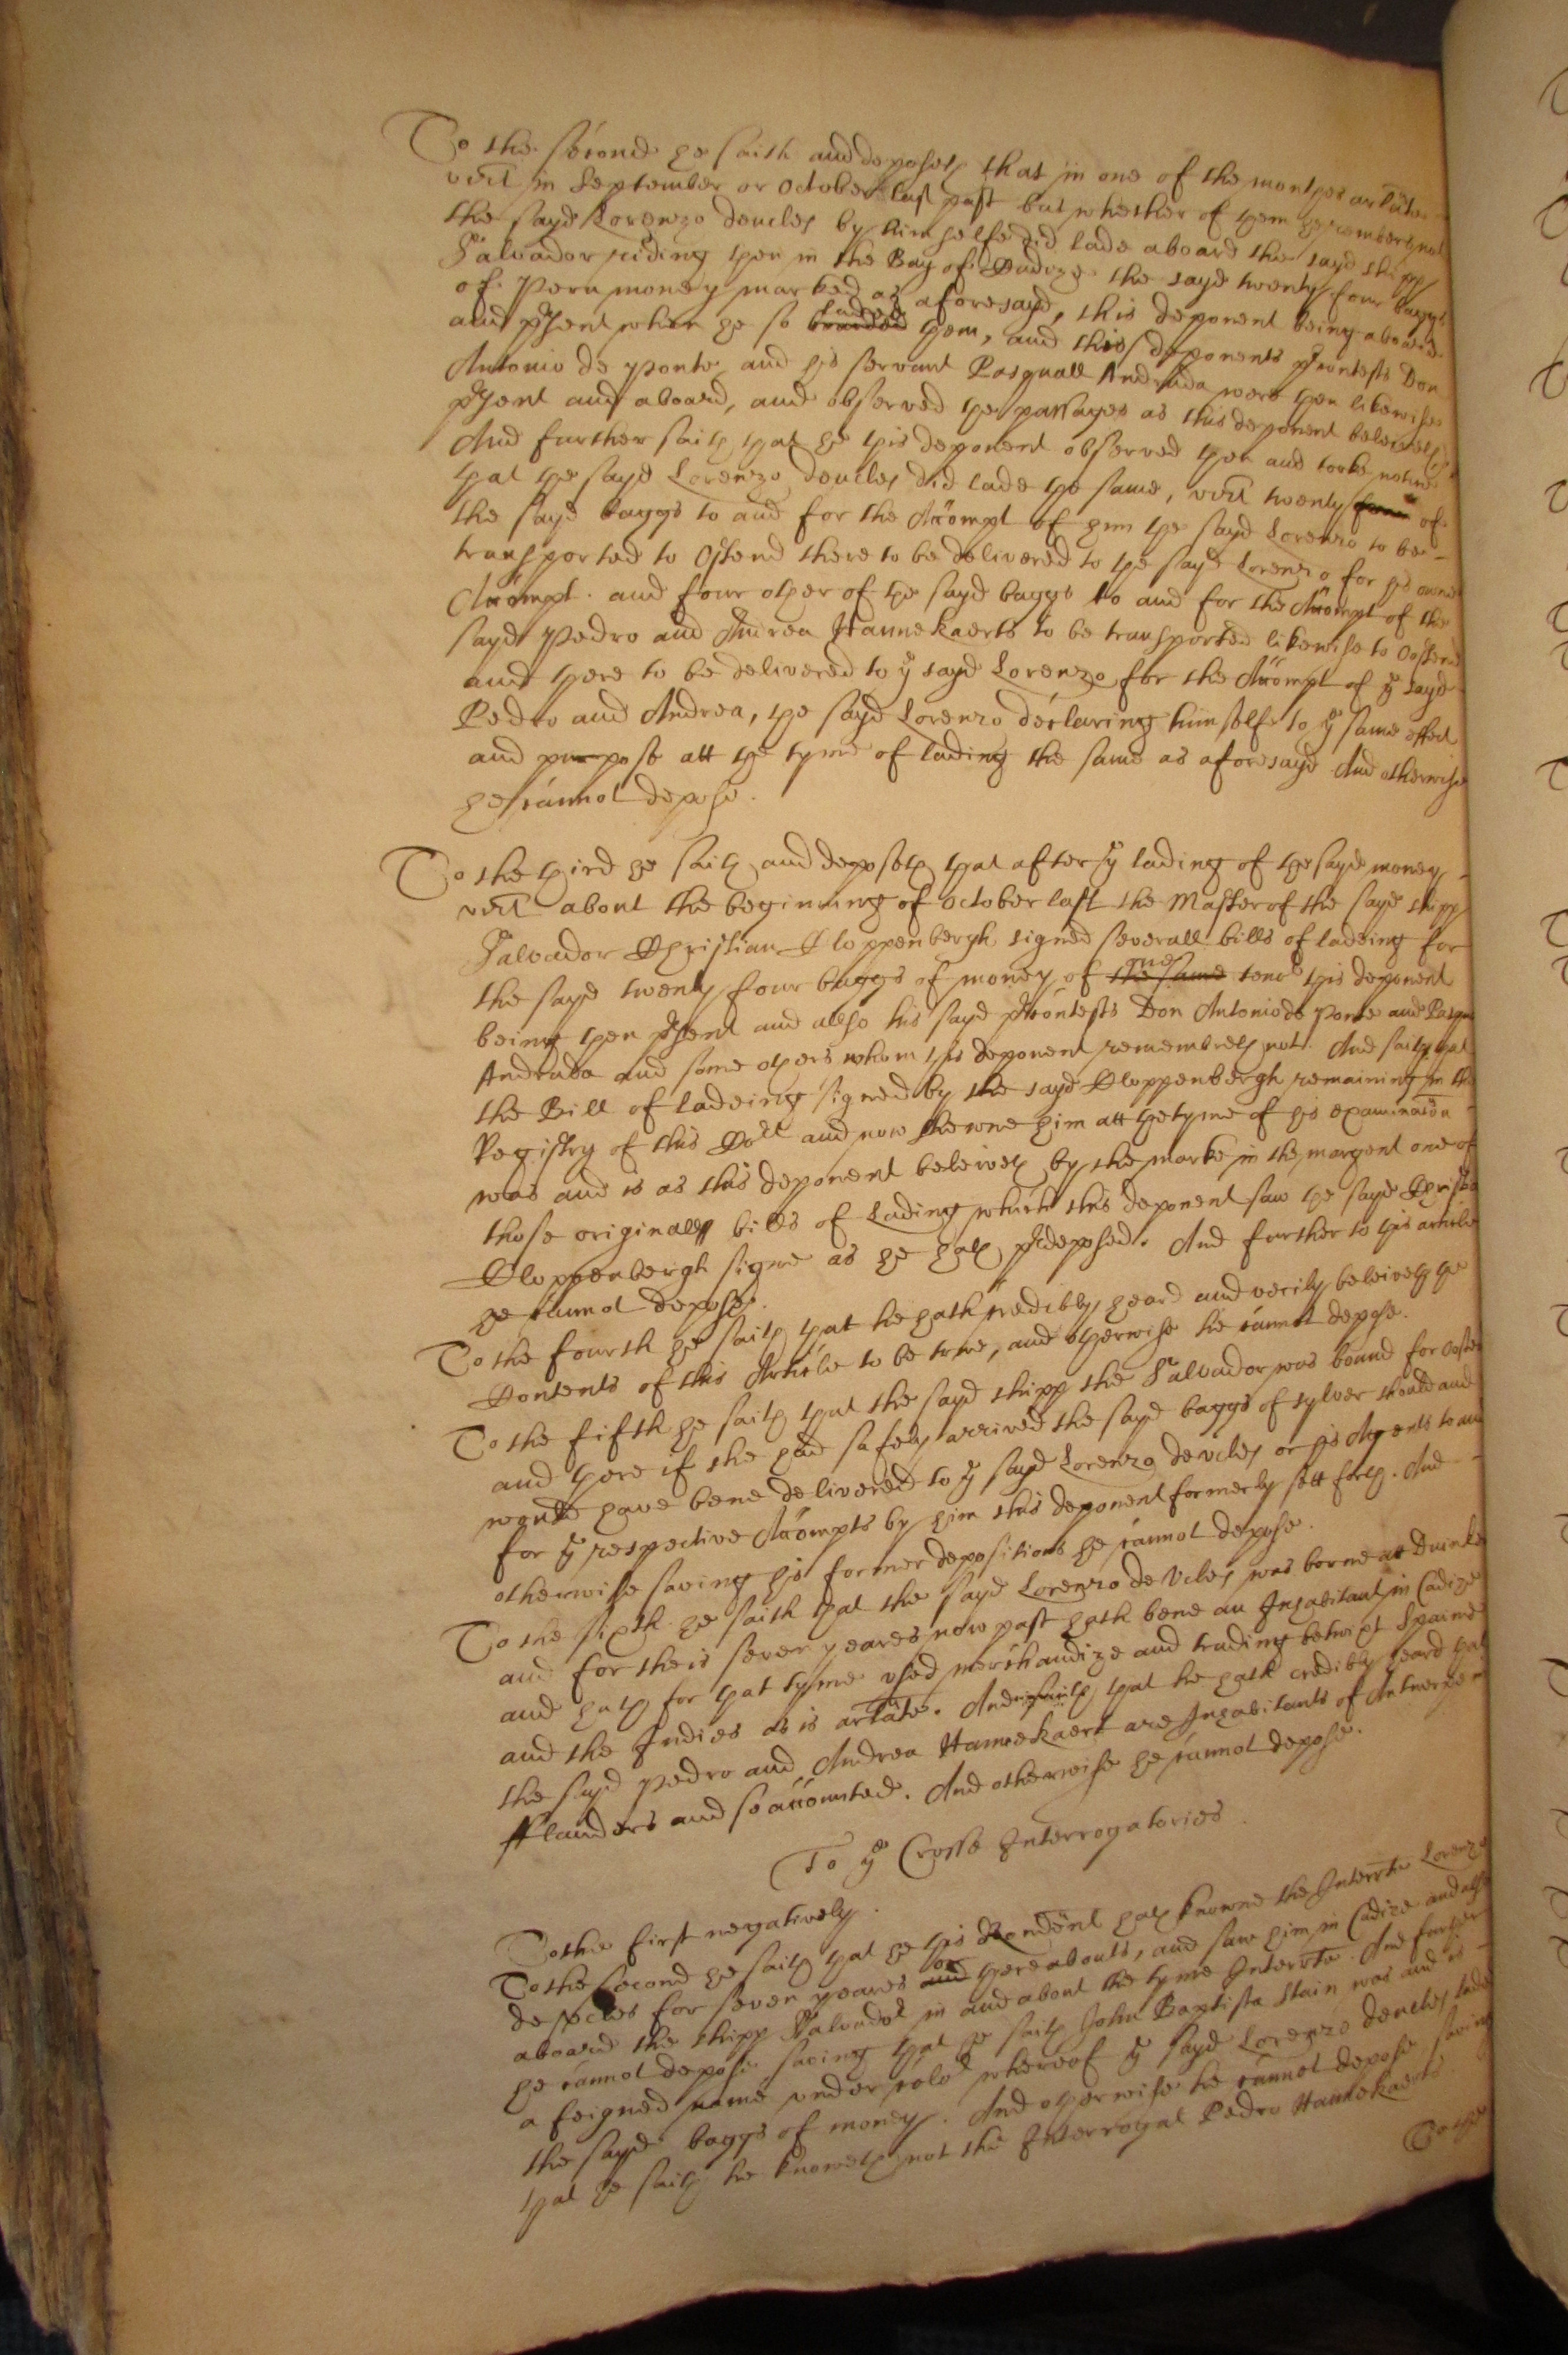 To the second he saith and deposeth that in one of the monthes arlate
vizt in September or October last past but whether of them he remembers not
the sayd Lorenzo deucles by himselfe did lade aboard the sayd shipp
Salvador riding then in the Bay of Cadize the sayd twenty four baggs
of Peru money marked as aforesayd, this deponent being aboard
and present when he so laded boarded them, and this deponents Precontests Don
Antonio de Ponte and his servant Pasquall Andruda were then likewise
present and aboard, and observed the passages as this deponent beleiveth
And further saith that he this deponent observed then and tooke notice
that the sayd Lorenzo deucles did lade the same, vizt twenty four of
the sayd baggs to and for the Accompt of him the sayd Lorenzo to be
transported to Ostend there to be delivered to the sayd Lorenzo for his owne
Accompt. and four other of the sayd baggs to and for the Accompt of the
sayd Pedro and Andrea Hannekaerts to be transported likewise to Oostend
and there to be delivered to ye sayd Lorenzo for the Accompt of ye sayd
Pedro and Andrea, the sayd Lorenzo declaring himselfe to ye same effect
and purpose att the tyme of lading the same as aforesayd And otherwise
he cannot depose.
To the third he saith and deposeth that after ye lading of the sayd money
vizt about the beginning of October last the Master of the sayd shipp
Salvador Christian Cloppenbergh signed severall bills of ladeing for
the sayd twenty four baggs of money of one the same tenor this deponent
being then present and allso his sayd Precontests Don Antonio de Ponte and
Andruda and some others whom this deponent remembreth not. And saith that
the Bill of ladeing signed by the sayd Cloppenbergh remaining in the
Registry of this Court and now shewne him att the tyme of his examination
was and is as this deponent beleiveth by the marke in the margent one of
those originall bills of Lading which this deponent saw the sayd
Cloppenbergh signe as he hath predeposed. And further to this article
he cannot depose.
To the fourth he saith that he hath credibly heard and verily beleiveth the
Contents of this Article to be true, and otherwise he cannot depose.
To the fifth he saith that the sayd shipp the Salvador was bound for
and there if she had safely arrived the sayd baggs of sylver should and
would have bene delivered to ye sayd Lorenzo deucles or his Agents to and
for ye respective Accompts by him this deponent formerly sett forth. And
otherwise saving his former depositions he cannot depose.
To the sixth he saith that the sayd Lorenzo de Vcles was borne att
and for theis seven yeares now past hath bene an Inhabitant in Cadize
and hath for that tyme vsed merchandize and trading betwixt Spaine
and the Indies as is arlate. And saith that he hath credibly heard that
the sayd Pedro and Andrea Hannekaert are Inhabitants of Antwerpe in
Fflanders and so accompted. And otherwise he cannot depose.
To ye Crosse Interrogatories
To the first negatively.
To the second he saith that he this Rendent hath knowne the Interrte Lorenzo
de Vcles for seven yeares or and thereabouts, and saw him in Cadize and allso
aboard the shipp Salvador in and about the tyme Interrte. And further
he cannot depose saving that he saith John Baptista Stain was and is
a feigned name vnder colour whereof ye sayd Lorenzo deucles lade
the sayd baggs of money. And otherwise he cannot depose saving
that he saith he knoweth not the Interrogat Pedro Hannekaerts
To the